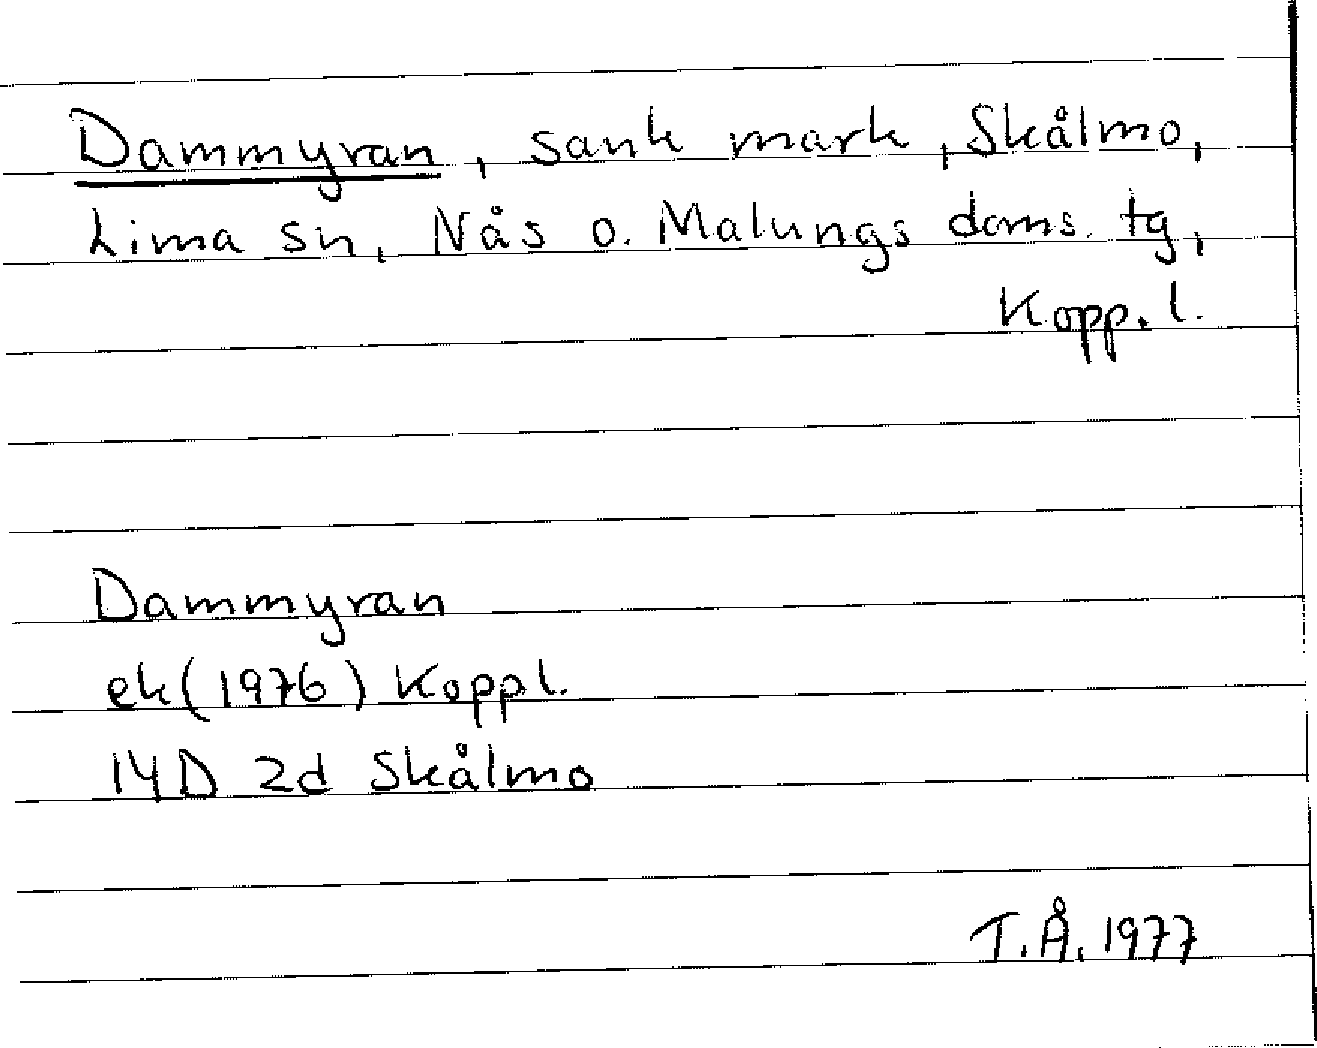 Dammyran, sank mark, Skålmo,
Lima sn, Nås o. Malungs doms. tg,
Kopp. l.
Dammyran
ek (1976) Koppl.
14D 2d Skålmo
T.Å. 1977